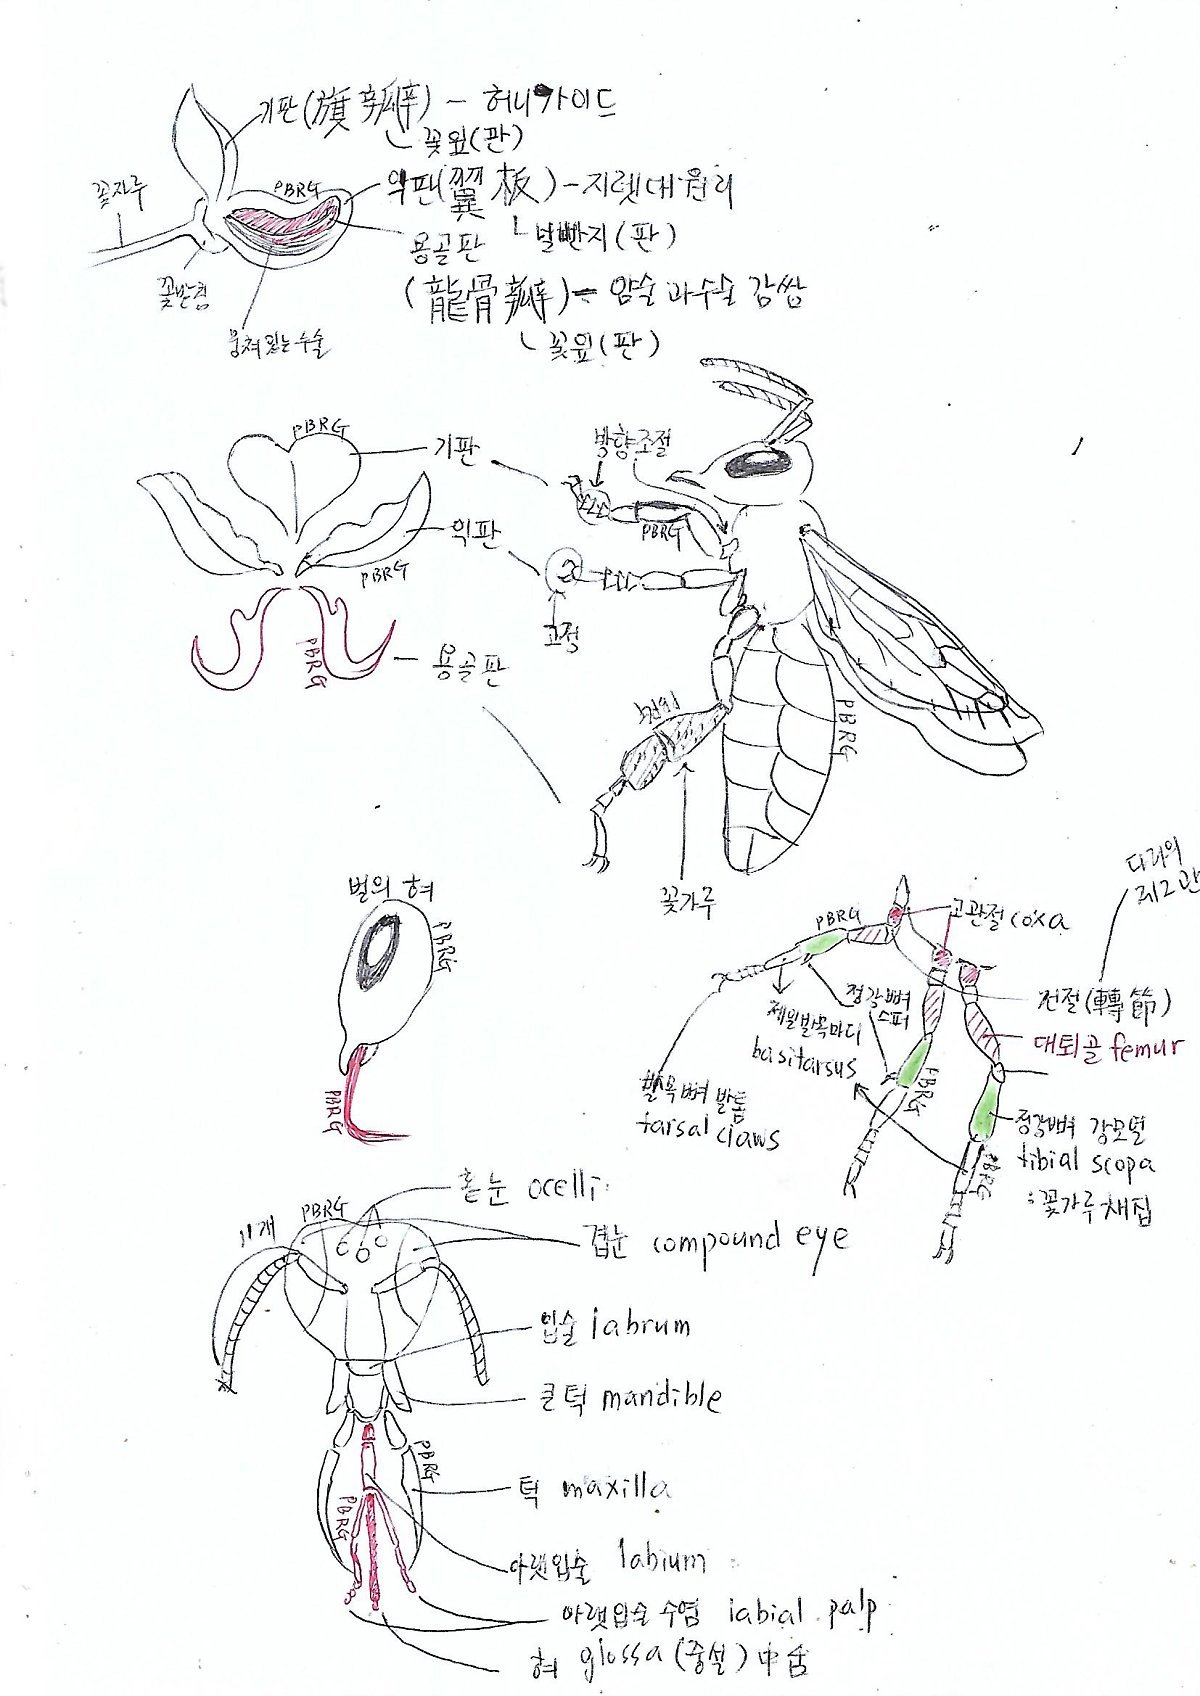 기판(旗瓣) - 허니가이드
꽃잎(판)
꽃자루
PBRG
익판(翼板) - 지렛대 원리
날빤지(판)
용골판
(龍骨瓣) - 암술과 수술 감쌈
꽃잎(판)
꽃받침
뭉쳐있는 수술
PBRG
기판
방향조절
PBRG
익판
PBRG
고정
PBRG
용골판
PBRG
꽃가루
벌의 혀
PBRG
PBRG
다리의
제2관
PBRG
고관절 coxa
전절(轉節)
정강뼈
스퍼
제일발목마디
basitarsus
대퇴골 femur
발목뼈 발톱
tarsal claws
PBRG
정강뼈 강모열
tibial scopa
:꽃가루 채집
PBRG
홑눈 ocelli
PBRG
11개
겹눈 compound eye
입술 labrum
큰턱 mandible
PBRG
턱 maxilla
PBRG
아랫입술 labium
아랫입술 수염 labial palp
혀 glossa (중설) 中舌